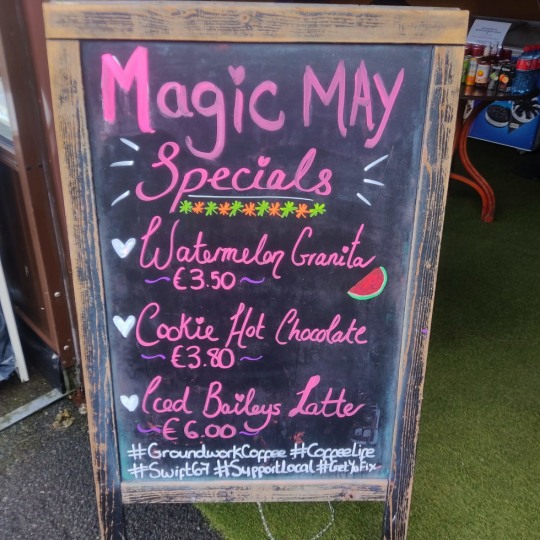 Magic MAY
Specials
Watermelon Granita
~ €3.50 ~
Cookie Hot Chocolate
~ €3.80 ~
Iced Baileys Latte
~ €6.00 ~
#GroundworkCoffee #CoffeeLife
#Swift67 #SupportLocal #GetYaFix